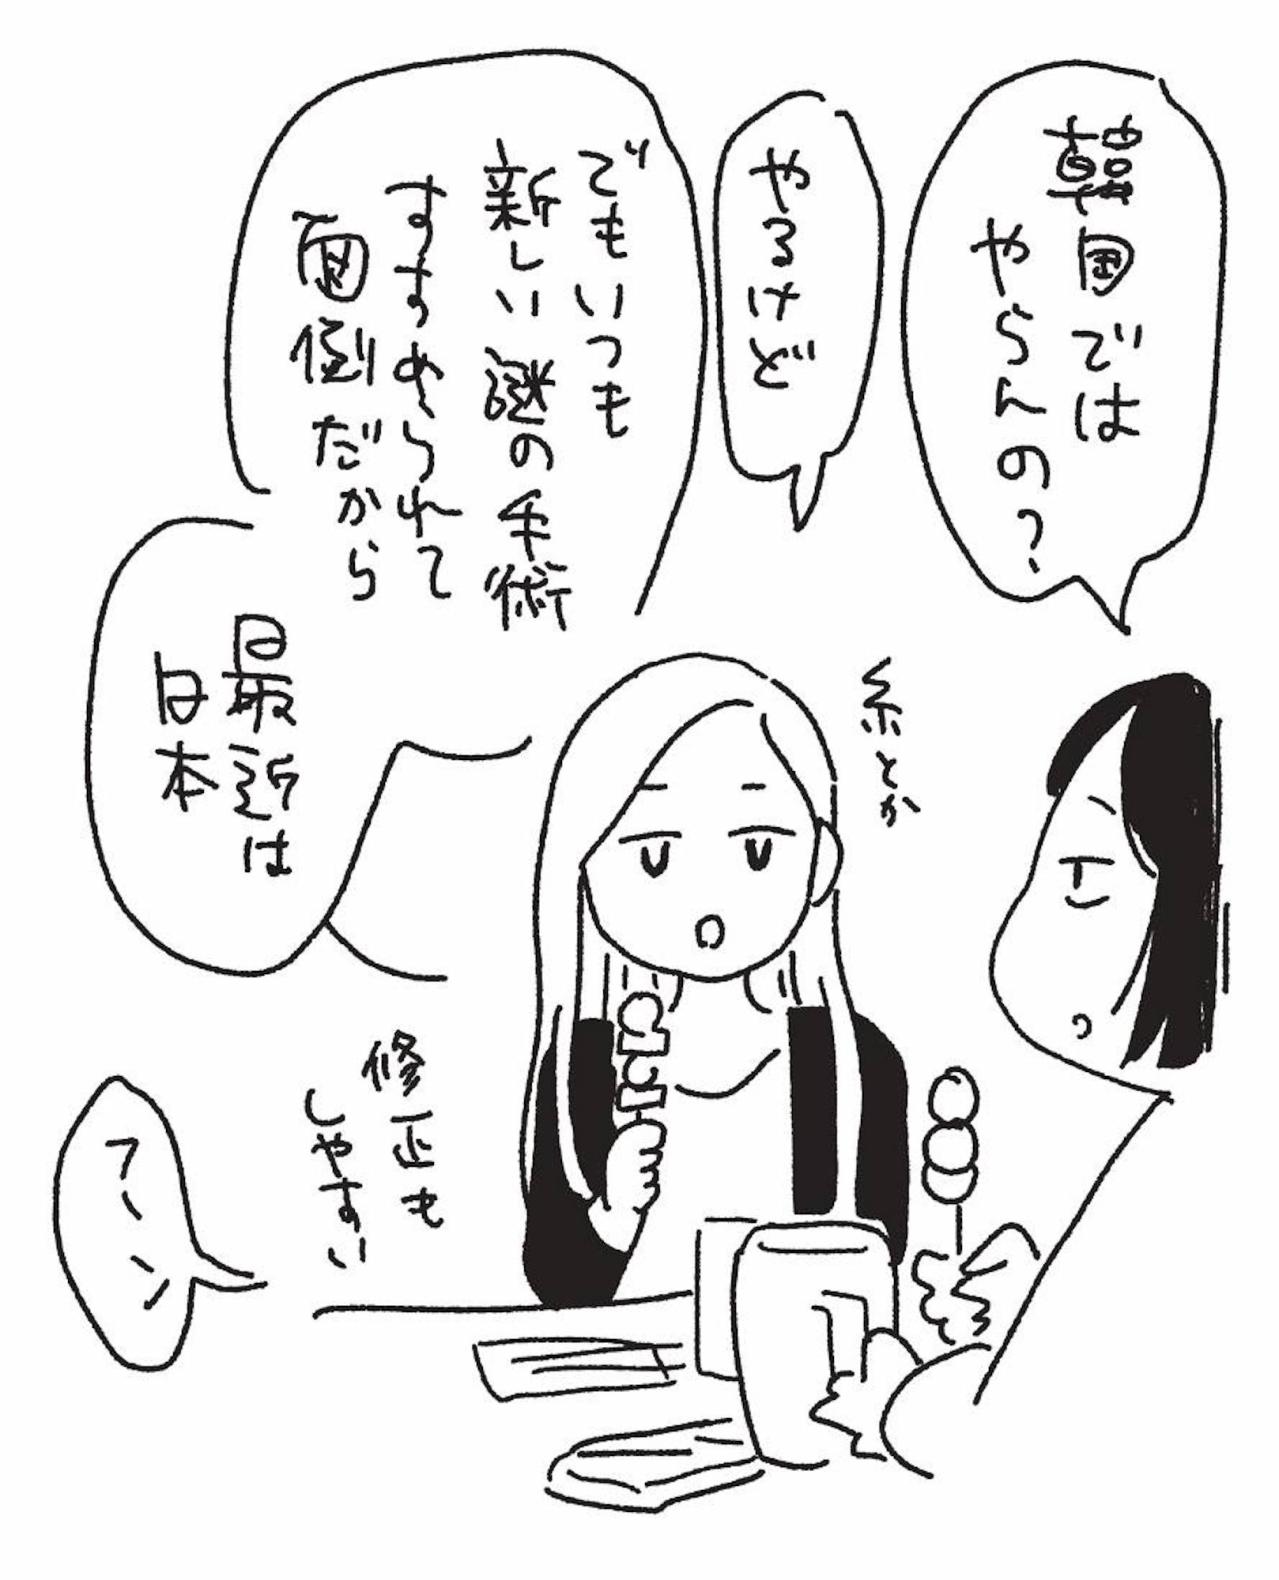 韓国では
やらんの?
やるけど
糸とか
でもいつも
新しい謎の手術
すすめられて
面倒だから
最近は
日本
修正も
しやすい
フーン